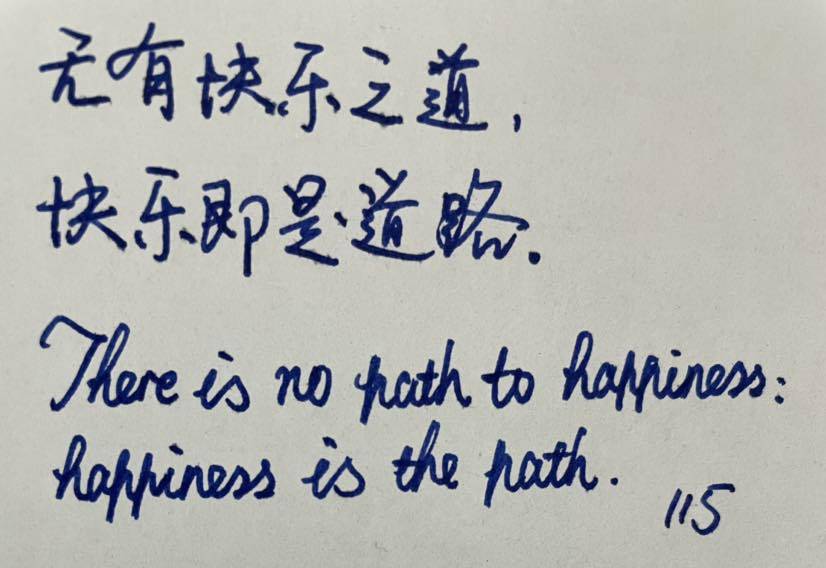 无有快乐之道,
快乐即是道路.
There is no path to happiness:
happiness is the path.
115